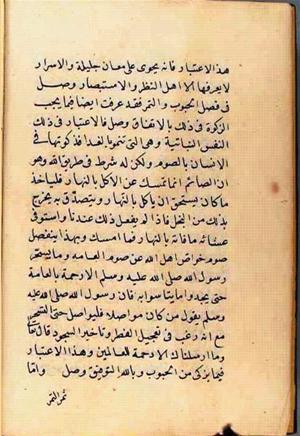 هذا الاعتبار فانه يحوى على معان جليلة والاسرار
لا يعرفها الا اهل النظر والاستبصار وصل
فى فصل الحبوب والتمر فقد عرفت ايضا فيما يجب
الزكوة فى ذلك بالاتفاق وصل فالاعتبار فى ذلك
النفس النباتية وهى التى تنمو بالغذا فزكوتها فى
الانسان بالصوم ولكن له شرط فى طريق الله وهو
ان الصائم انما تمسك عن الاكل بالنهار فلياخذ
ما كان يستحق ان ياكل بالنهار ويتصدق به ليخرج
بذلك من البخل فاذا لم يفعل ذلك عندنا واستوفى
عشائه ما فاته بالنهار فما امسك وبهذا ينفصل
صوم خواص اهل الله عن صوم العامه وما يسحر
رسول الله صلى الله عليه وسلم الا رحمة بالعامة
حتى يجدوا ما يتاسوا به فان رسول الله صلى الله عليه
وسلم يقول من كان مواصلا فليواصل حتى السحر
مع انه رغب فى تعجيل الفطر وتاخير السحور قال تعا
وما ارسلناك الا رحمة للعالمين وهذا الاعتبار
فيما يزكى من الحبوب وبالله التوفيق وصل واما
ثمر التمر